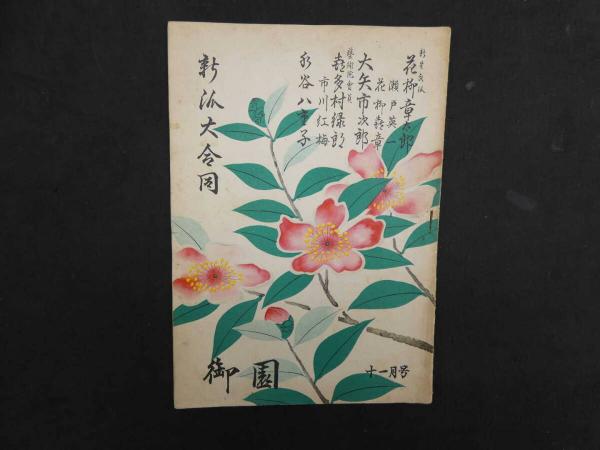 花柳章太郎
瀬戸英一
花柳喜章
大矢市次郎
藝術院會員
喜多村緑郎
市川紅梅
水谷八重子
新派大合同
御園
十一月号